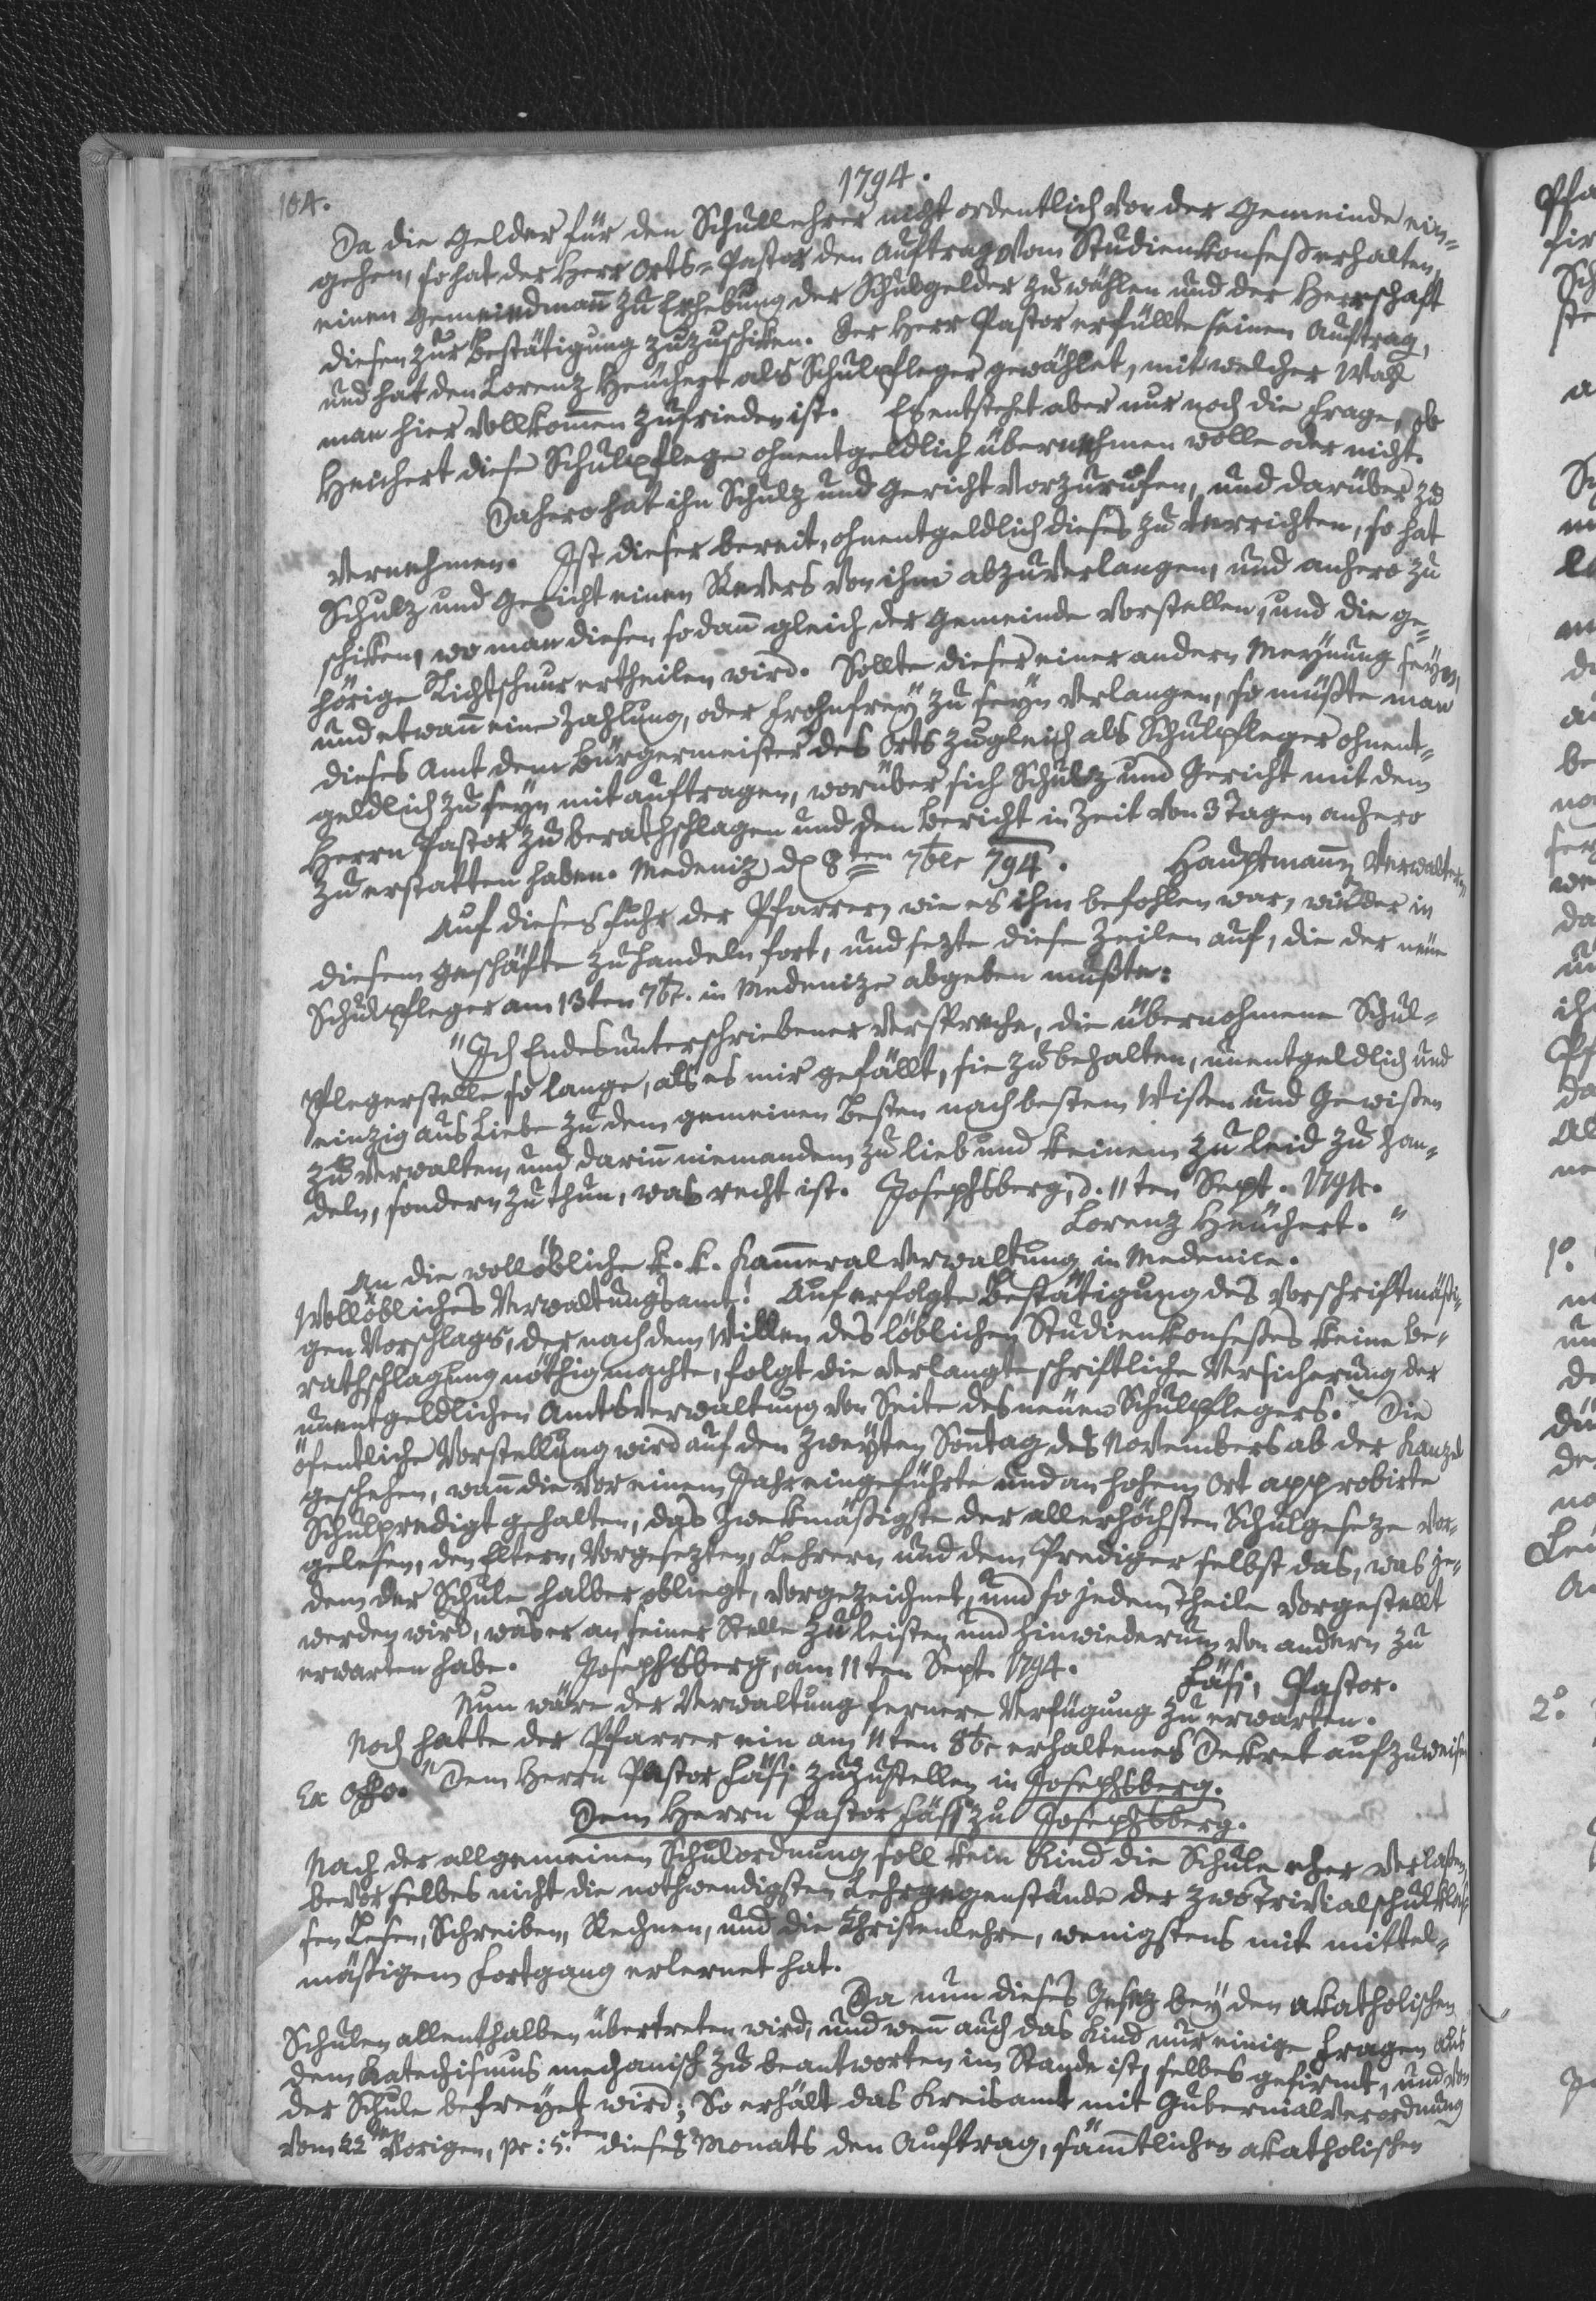 104.
1794.
Da die Gelder für den Schullehrer nicht ordentlich von der Gemeinde ein=
gehen, so hat der Herr Orts=Pastor den Auftrag vom Studienkonseß erhalten,
einen Gemeindmañ zu Erhebung der Schulgelder zu wählen und der Herrschaft
diesen zur Bestätigung zuzuschiken. Der Herr Pastor erfüllte seinen Auftrag,
und hat den Lorenz Heüchert als Schulpfleger gewählet, mit welcher Wahl
man hier vollkom̄en zufrieden ist. Es entstehet aber nur noch die Frage, ob
Heichert diese Schulpflege ohnentgeldlich übernehmen wolle oder nicht.
Dahero hat ihn Schulz und Gericht vorzurufen, und darüber zu
vernehmen. Ist dieser bereit, ohnentgeldlich dieses zu verrichten, so hat
Schulz und Gericht einen Revers von ihm abzuverlangen, und anhero zu
schiken, wo man diesen sodañ gleich der Gemeinde vorstellen, und die ge=
hörige Richtschnur ertheilen wird. Sollte dieser einer andern Meynung seyn,
und etwañ eine Zahlung, oder Frohnfrey zu seyn verlangen, so müßte man
dieses Amt dem Bürgermeister des Orts zugleich als Schulpfleger ohnent=
geldlich zu seyn mit auftragen, worüber sich Schulz und Gericht mit dem
Herrn Pastor zu berathschlagen und den Bericht in Zeit von 3 Tagen anhero
zu erstatten haben. Medeniz d. 8ten 7ber 794. Hauptmañ, Verwalter.
Auf dieses fuhr der Pfarrer, wie es ihm befohlen war, wieder in
diesem Geschäfte zu handeln fort, und sezte diese Zeilen auf, die der neüe
Schulpfleger am 13ten 7br. in Medenize abgeben mußte:
"Ich Endesunterschriebener verspreche, die übernohmene Schul=
pflegerstelle so lange, als es mir gefällt, sie zu behalten, unentgeldlich und
einzig aus Liebe zu dem gemeinen Besten nach bestem Wißen und Gewißen
zu verwalten, und dariñ niemandem zu lieb und keinem zu leid zu han=
deln, sondern zu thun, was recht ist. Josephsberg, d. 11ten Sept. 1794.
Lorenz Heüchert. "
An die wollöbliche k. k. Kam̄eralverwaltung in Medenice.
Wollöbliches Verwaltungsamt! Auf erfolgte Bestätigung des vorschriftmäßi=
gen Vorschlags, der nach dem Willen des löblichen Studienkonseßes keine Be=
rathschlagung nöthig machte, folgt die verlangte schriftliche Versicherung der
unentgeldlichen Amtsverwaltung von Seite des neüen Schulpflegers. Die
öfentliche Vorstellung wird auf den zweyten Soñtag des Novembers ab der Kanzel
geschehen, wañ die vor einem Jahr eingeführte und an hohem Ort approbirte
Schulpredigt gehalten, das Zwekmäßigste der allerhöchsten Schulgeseze vor=
gelesen, den Eltern, Vorgesezten, Lehrern und dem Prediger selbst das, was je=
dem der Schule halber obliegt, vorgezeichnet, und so jedem Theile vorgestellt
werden wird, was er an seiner Stelle zu leisten und hinwiederum von andern zu
erwarten habe. Josephsberg, am 11ten Sept. 1794. Fäsi, Pastor.
Nun wäre der Verwaltung fernere Verfügung zu erwarten.
Noch hatte der Pfarrer ein am 11ten 8br erhaltenes Dekret aufzuweisen
Ex Offo. " Dem Herrn Pastor Fäsi zuzustellen in Josephsberg.
Dem Herrn Pastor Fäsi zu Josephsberg.
Nach der allgemeinen Schulordnung soll kein Kind die Schule eher verlaßen,
bevor selbes nicht die nothwendigsten Lehrgegenstände der zwo Trivialschulklaß=
sen Lesen, Schreiben, Rechnen, und die Christenlehre, wenigstens mit mittel=
mäßigem Fortgang erlernet hat.
Da nun dieses Gesez bey den akatholischen
Schulen allenthalben übertreten wird, und weñ auch das Kind nur einige Fragen aus
dem Katechismus mechanisch zu beantworten im Stande ist, selbes gefirmt, und von
der Schule befreyet wird; So erhält das Kreisamt mit Gubernialverordnung
vom 22ten vorigen, pr: 5ten dieses Monats den Auftrag, säm̄tlichen akatholischen